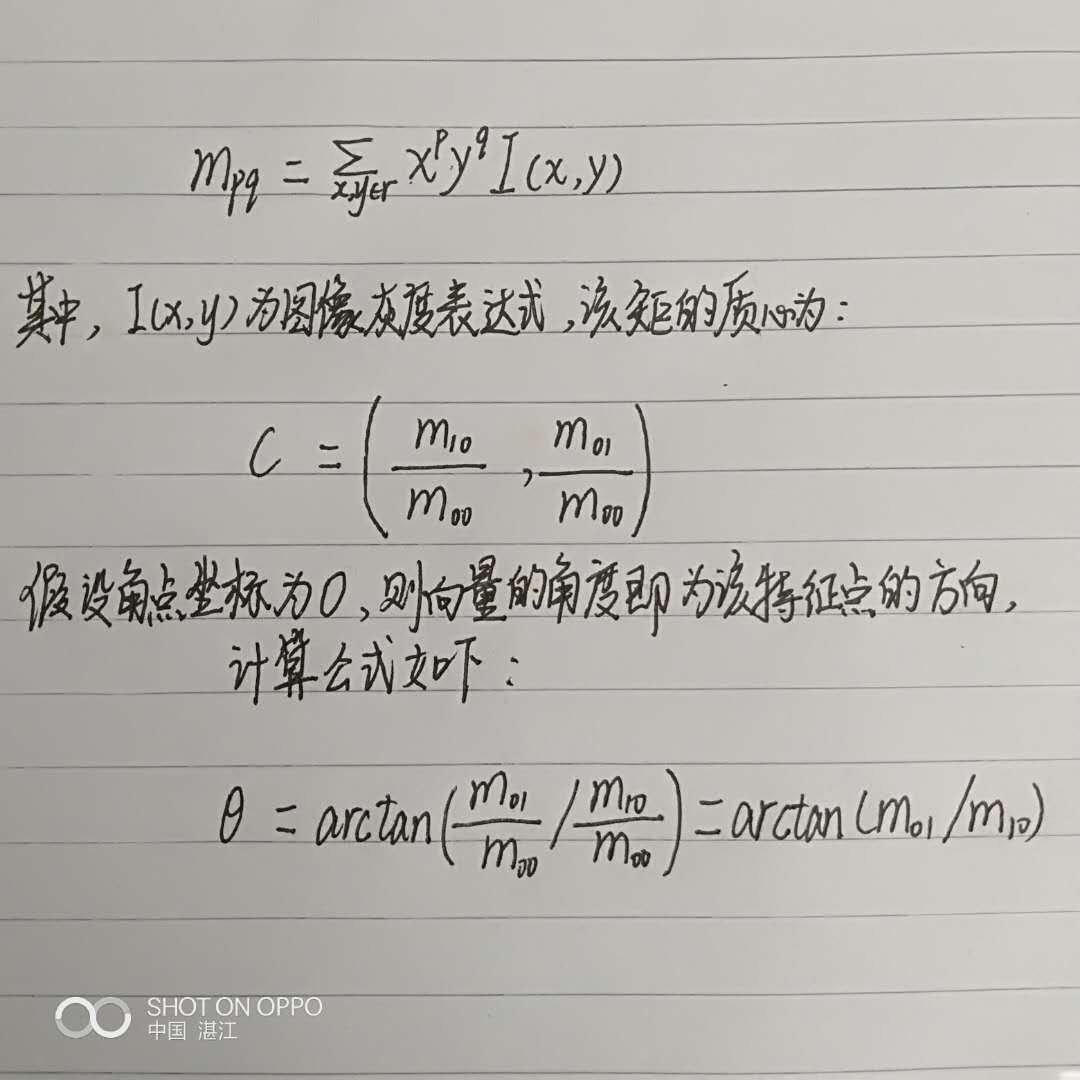 m_{pq} = \sum_{x,y∈r} x^p y^q I(x,y)
其中, I(x,y)为图像灰度表达式,该矩的质心为:
C = ( \frac{m_{10}}{m_{00}} , \frac{m_{01}}{m_{00}} )
假设角点坐标为O,则向量的角度即为该特征点的方向,
计算公式如下:
θ = arctan( \frac{m_{01}}{m_{00}} / \frac{m_{10}}{m_{00}} ) = arctan(m_{01}/m_{10})
SHOT ON OPPO
中国 湛江